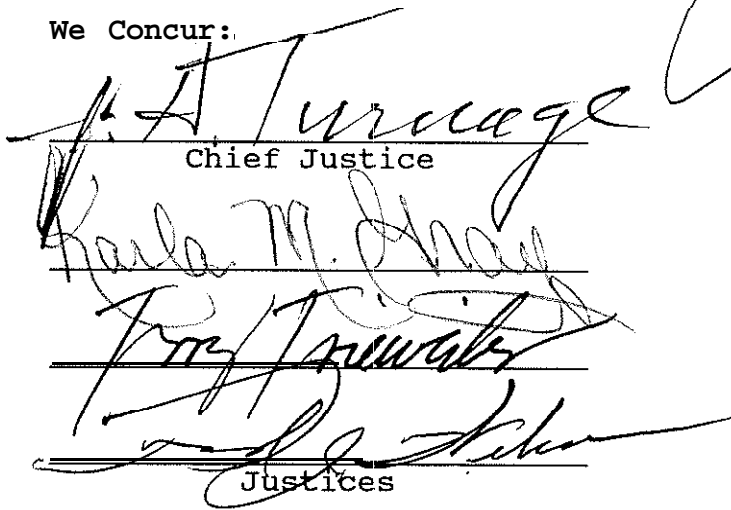 We Concur:
J. A. Turnage
Chief Justice
Karla M. Gray
Terry Trieweiler
Justices